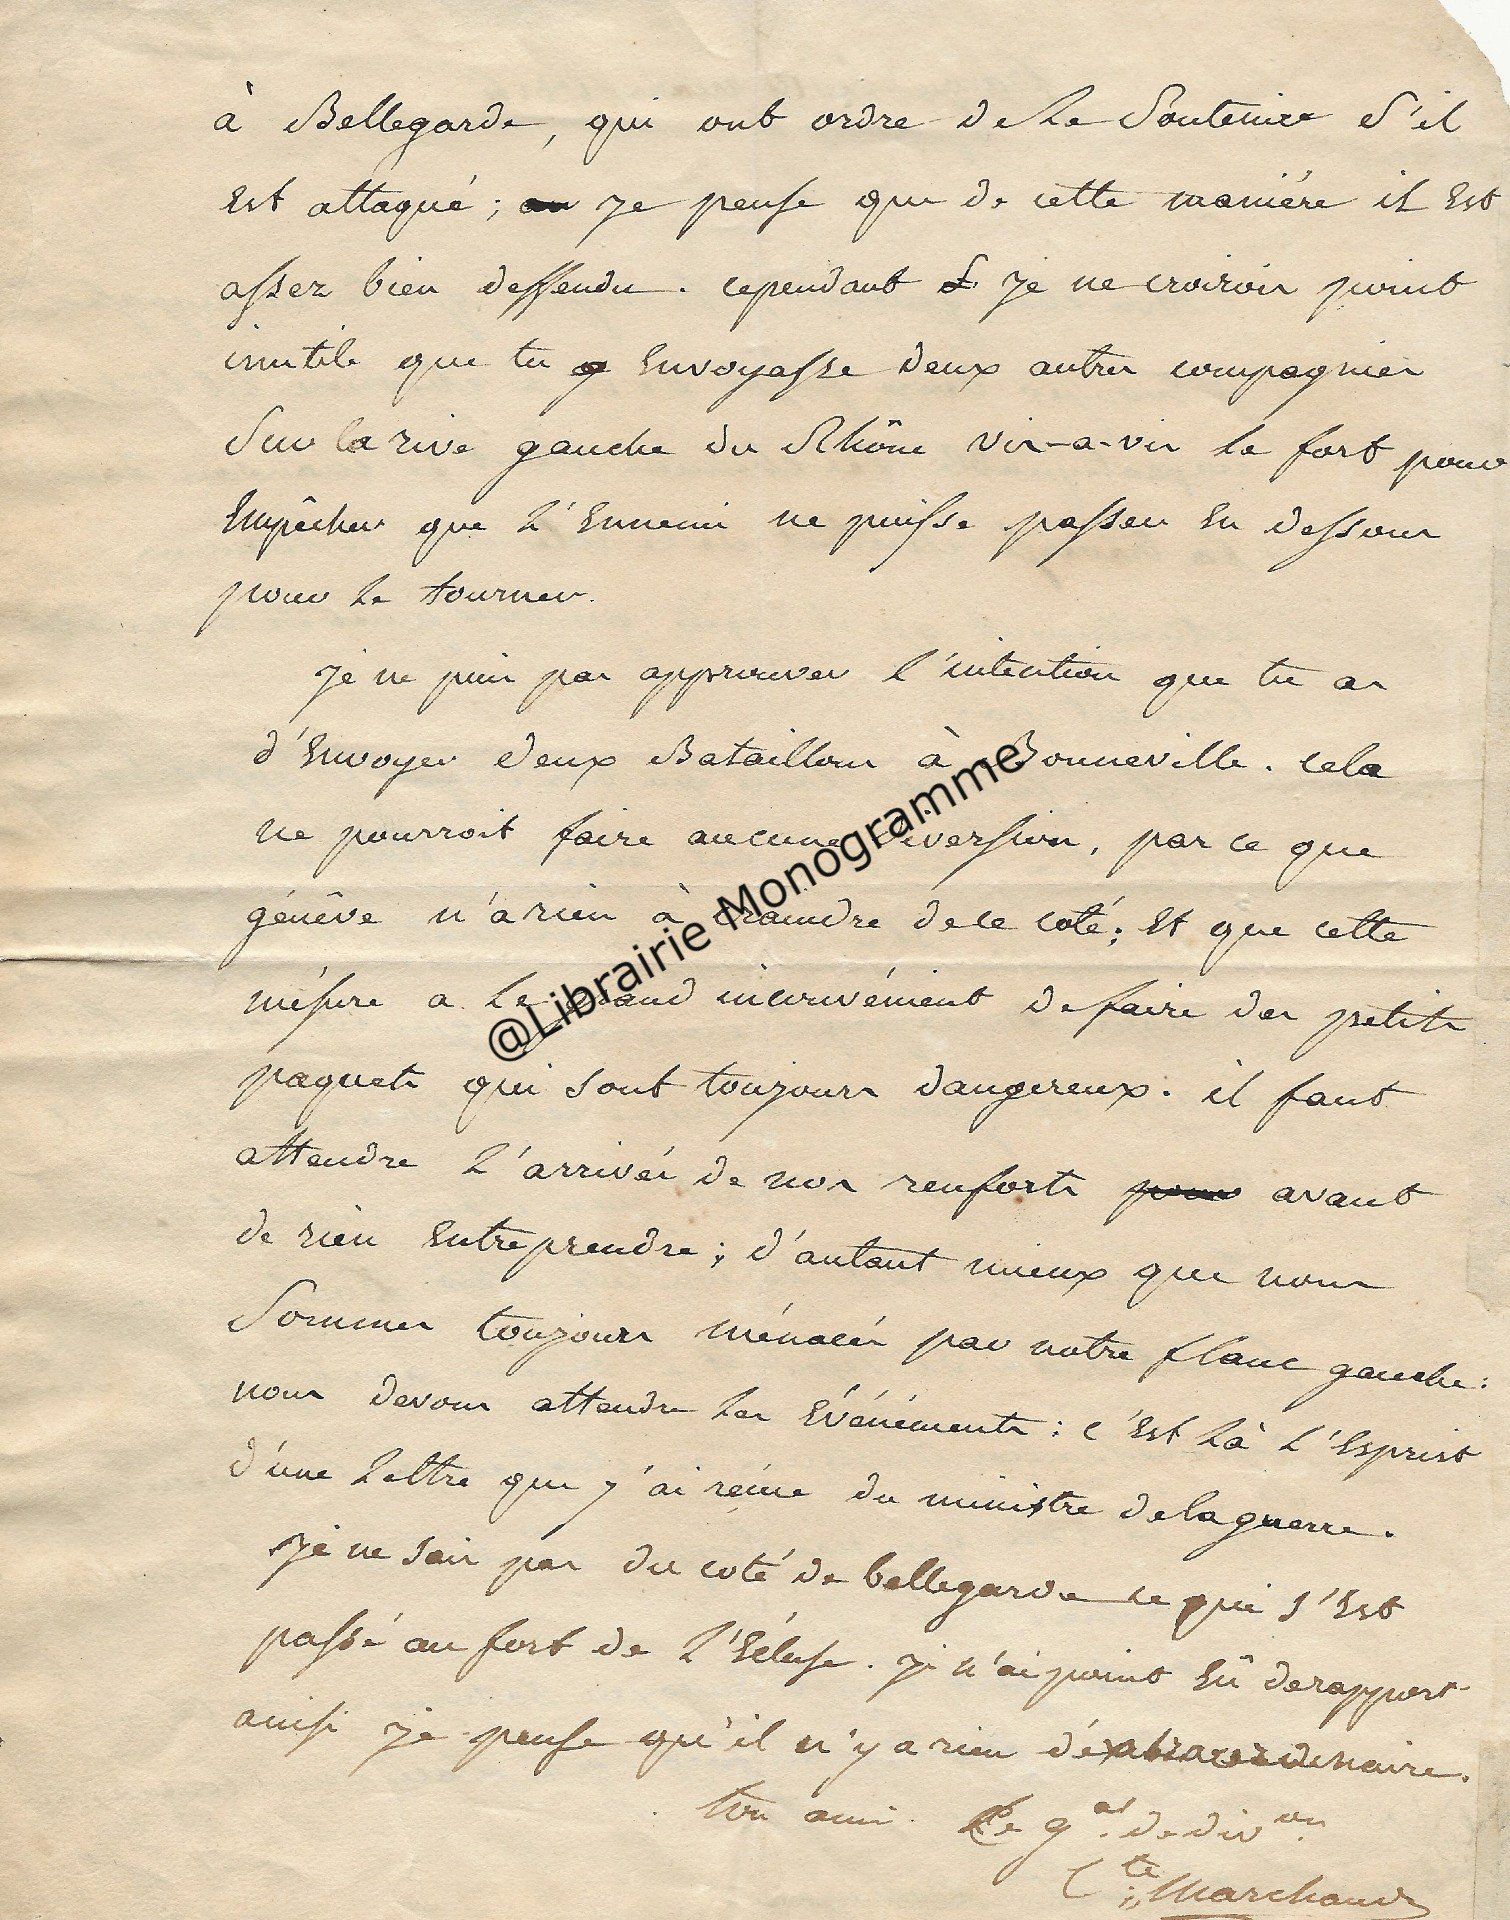 à Bellegarde, qui ont ordre de le Soutenire S'il
Est attaqué; au je pense que de cette maniére il Est
assez bien deffendu. cependant je ne croirois point
inutile que tu q Envoyasse deux autres compagnies
Sur la rive gauche du Rhône vis-a-vis le fort pour
Empêcher que l'Ennemi ne puisse passer En dessous
pour le tourner.
je ne puis pas approuver l'intention que tu as
d'Envoyer deux Bataillons à Bonneville. cela
ne pourroit faire aucune diversion, par ce que
génêve n'a rien à craindre de ce coté; Et que cette
mésure a le grand inconvénient de faire des petits
paquets qui sont toujours dangereux. il faut
attendre l'arrivée de nos renforts pour avant
de rien Entreprendre; d'autant mieux que nous
Sommes toujours ménacés par notre flanc gauche:
nous devons attendre les Événéments: c'Est là l'Esprit
d'une lettre que j'ai reçue du ministre de la guerre.
je ne sais pas du coté de bellegarde ce qui s'Est
passé au fort de l'Écluse. je n'ai point Eû de rapport
ainsi je pense qu'il n'y a rien d'éxtraordinaire.
ton ami. Le gal. de divon.
Cte Marchand
@Librairie Monogramme